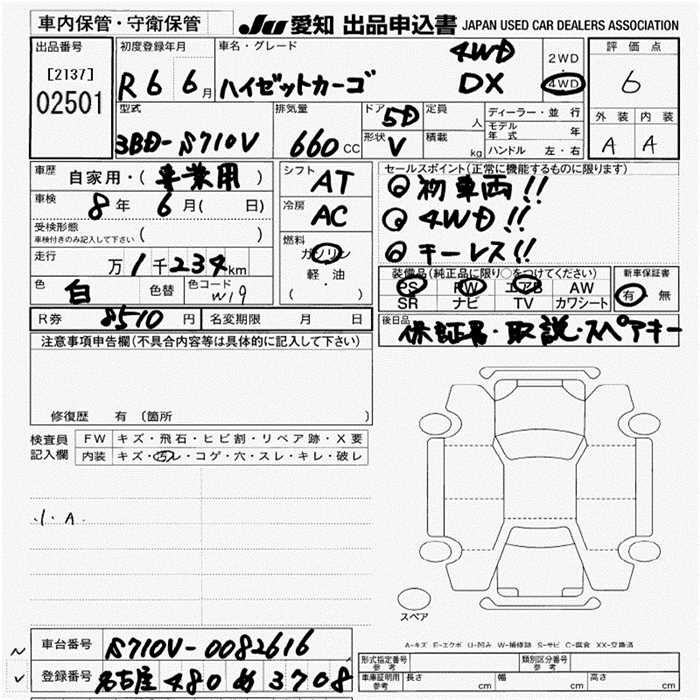 車内保管・守衛保管
JU 愛知 出品申込書 JAPAN USED CAR DEALERS ASSOCIATION
出品番号
[2137]
02501
初度登録年月
R6 6月
車名・グレード
ハイゼットカーゴ
4WD
DX
2WD
・
4WD
評価点
6
外装 内装
A A
型式
3BD-S710V
排気量
660 CC
ドア 5D
形状 V
定員 人
積載 kg
ディーラー・並行
モデル年式 年
ハンドル 左・右
車歴
自家用・(事業用)
車検
8年 6月( 日)
受検形態
車検付きのみ記入して下さい ( )
走行
万1千234km
色 白 色替 色コード W19
シフト
AT
冷房
AC
燃料
ガソリン
軽・油
( )
セールスポイント(正常に機能するものに限ります)
◎初車両!!
◎4WD!!
◎キーレス!!
装備品(純正品に限り○をつけてください)
PS PW エアB AW
SR ナビ TV カワシート
新車保証書
有・無
R券 8510円 名変期限 月 日
後日品
保証書・取説・スペアキー
注意事項申告欄(不具合内容等は具体的に記入して下さい)
修復歴 有 〔箇所
検査員記入欄
FW キズ・飛石・ヒビ割・リペア跡・X要
内装 キズ・汚レ・コゲ・穴・スレ・キレ・破レ
スペア
A=キズ E=エクボ U=凹み W=補修跡 S=サビ C=腐食 XX=交換済
車台番号 S710V-0082616
登録番号 名古屋 480 3708
型式指定番号 参考
類別区分番号 参考
車庫証明用 参考 長さ cm 幅 cm 高さ cm